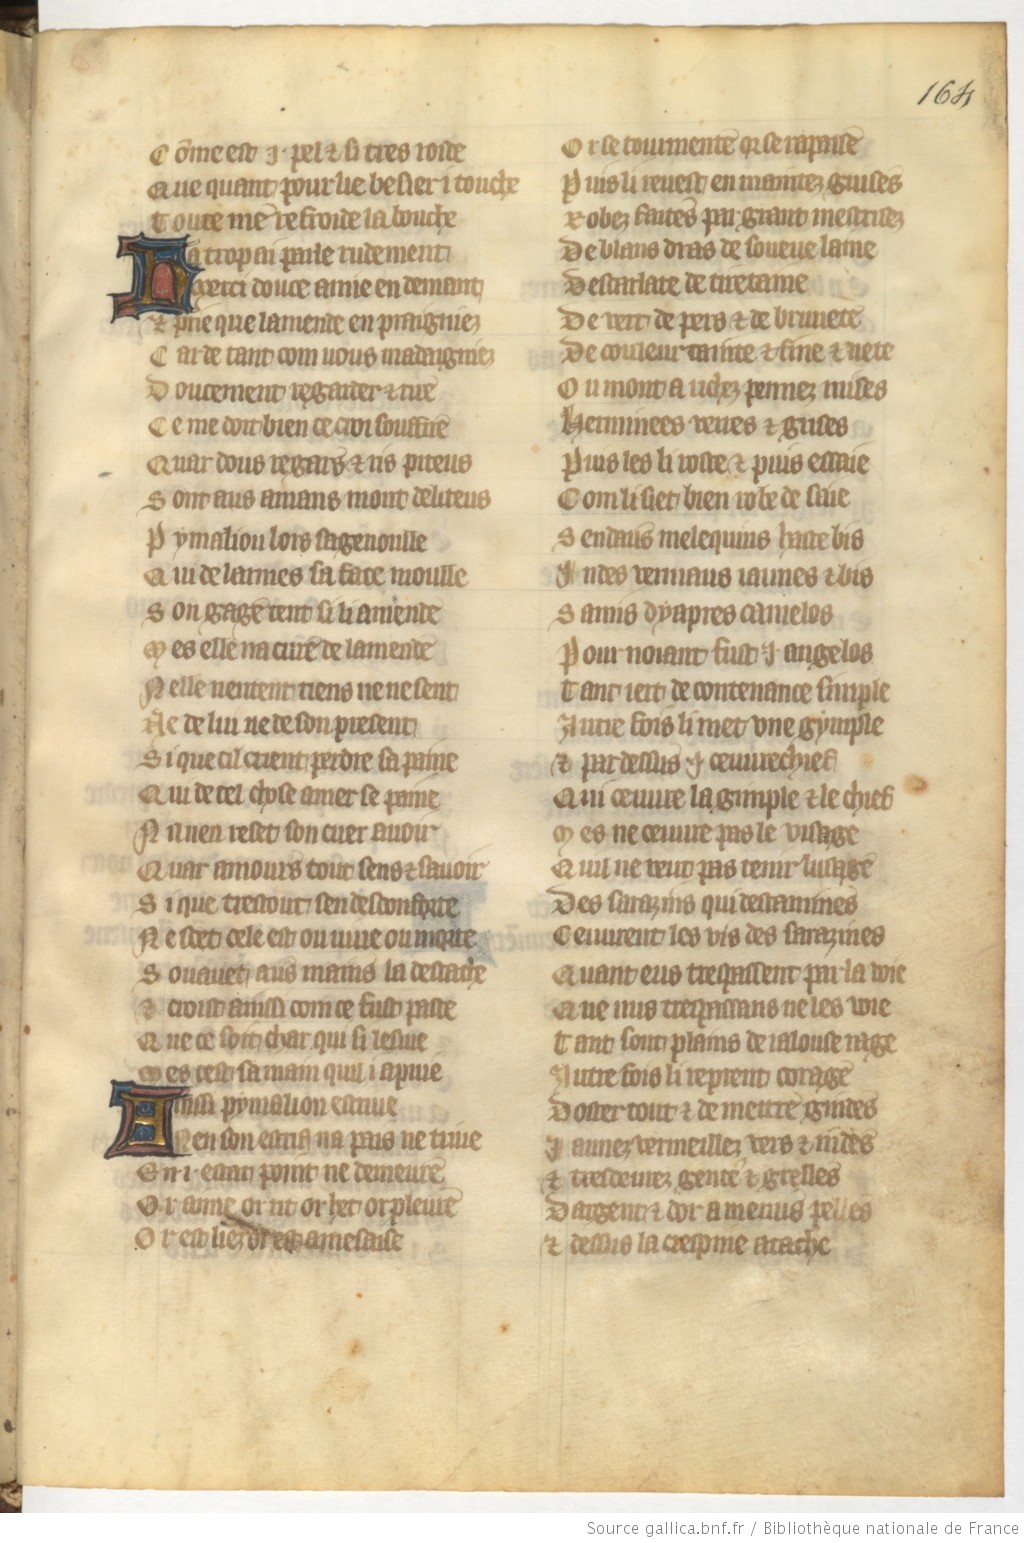 164
Cõme est .j. pel & si tres roide
Que quant pour lie besier i touche
Toute me refroide la bouche
Ha trop ai parle rudement
Merci douce amie en demant
Et prie que lamende en praigniez
Car de tant com vous madaigniez
Doucement regarder & rire
Ce me doit bien ce croi souffire
Quar dous regars & ris piteus
Sont aus amans mont deliteus
Pymalion lors sagenoulle
Qui de larmes sa face moulle
Son gage tent si li amende
Mes elle na cure de lamende
Nelle nentent riens ne ne sent
Ne de lui ne de son present
Si que cil crient perdre sa paine
Qui de tel chose amer se paine
Ni nen reset son cuer avoir
Quar amours tout sens & savoir
Si que trestout sen desconforte
Ne set cele est ou vive ou morte
Souavet aus mains la detaste
Et croit ainsi com ce fust paste
Que ce soit char qui li fesuie
Mes cest sa main quil i apuie
Ainsi pymalion estrive
Nen son estrif na pais ne trive
En .i. estat point ne demeure
Or aime or rit or het or pleure
Or est liez or est a mesaise
Or se tourmente or se rapaise
Puis li revest en maintez guises
Robez faites par grant mestrisez
De blans dras de soueve laine
Descarlate de tiretaine
De vert de pers & de brunete
De couleur tainte & fine & nete
Ou mont a richez pennez mises
Herminees veires & grises
Puis les li roste & puis essaie
Com li siet bien robe de saie
Sendaus melequins hatebis
Indes vermaus iaunes & bis
Samis dyapres camelos
Pour noiant fust .j. angelos
Tant iert de contenance simple
Autre fois li met une gimple
Et par dessus .j. cuevrechief
Qui cuevre la gimple & le chief
Mes ne cuevre pas le visage
Quil ne veut pas tenir lusage
Des sarazins qui destamines
Cuevrent les vis des sarazines
Quant eus trespassent par la voie
Que nus trespassans ne les voie
Tant sont plains de ialouse rage
Autre fois li reprent corage
Doster tout & de mettre guindes
Jaunez vermeillez vers & indes
Et trescoiez gente & grelles
Dargent & dor a menus pelles
Et dessus la crespine atache
Source gallica.bnf.fr / Bibliothèque nationale de France